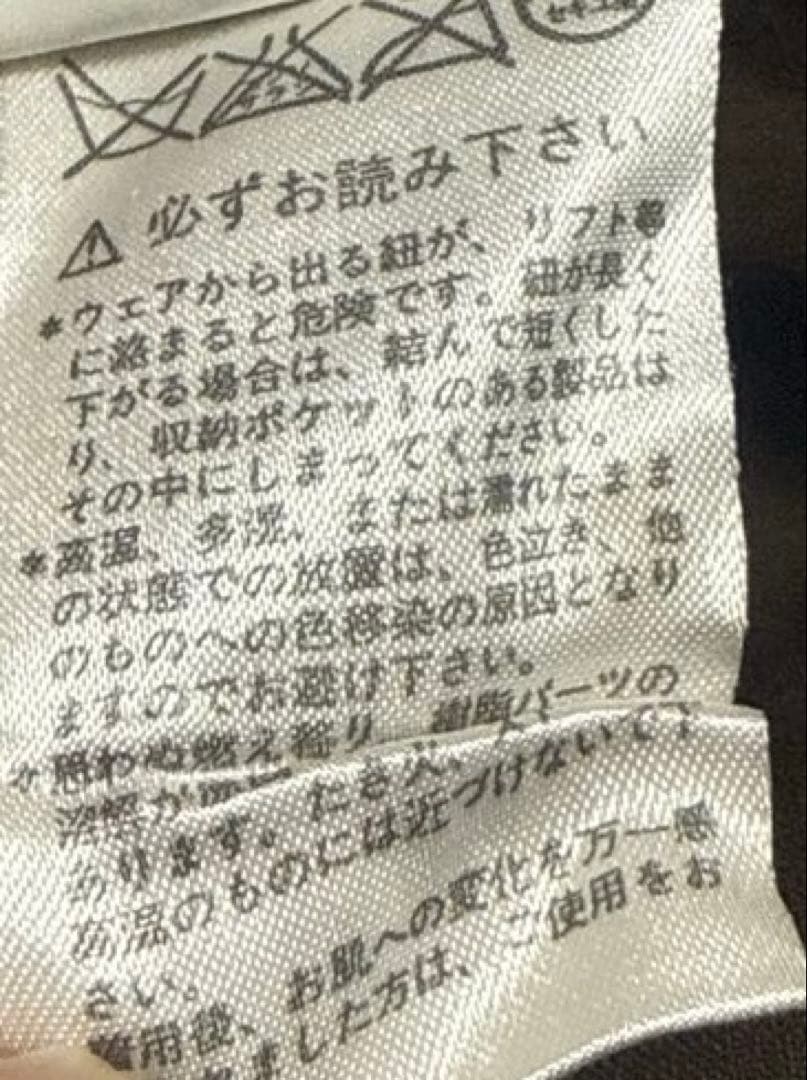 ⚠ 必ずお読み下さい
*ウェアから出る紐が、リフト
に絡まると危険です。紐が長く
下がる場合は、結んで短くした
り、収納ポケットのある製品は
その中にしまってください。
*高温、多湿、または濡れたまま
の状態での放置は、色泣き、他
のものへの色移染の原因となり
ますのでお避け下さい。
*思わぬ燃え移り、樹脂パーツの
溶解が
あります。たき火、
高温のものには近づけないで
さい。
着用後、お肌への変化を万一感
ました方は、ご使用をお